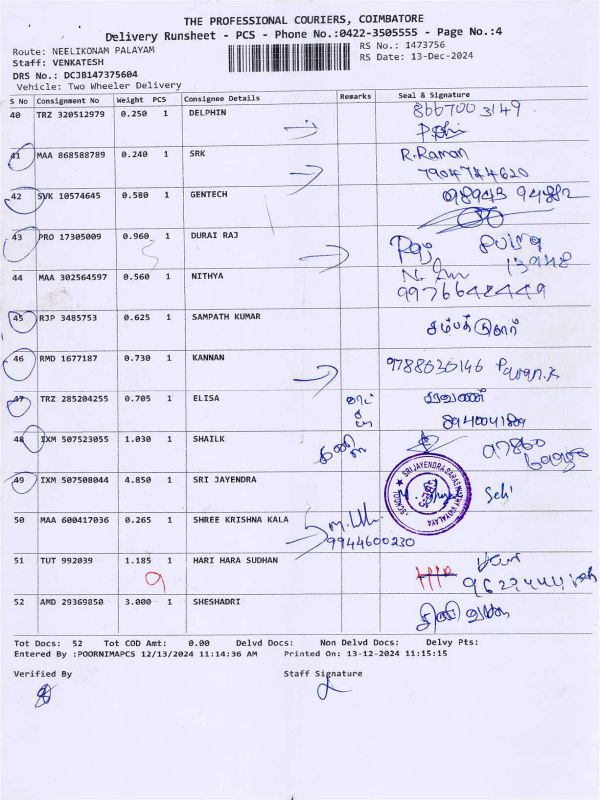 THE PROFESSIONAL COURIERS, COIMBATORE
Delivery Runsheet - PCS - Phone No.:0422-3505555 - Page No.:4
Route: NEELIKONAM PALAYAM
RS No.: 1473756
Staff: VENKATESH
RS Date: 13-Dec-2024
DRS No.: DCJB147375604
Vehicle: Two Wheeler Delivery
S No Consignment No Weight PCS Consignee Details Remarks Seal & Signature
40 TRZ 320512979 0.250 1 DELPHIN 866700 3149
41 MAA 868588789 0.240 1 SRK R.Raman
7904744620
42 SVK 10574645 0.580 1 GENTECH
43 PRO 17305009 0.960 1 DURAI RAJ
44 MAA 302564597 0.560 1 NITHYA
9976642449
45 RJP 3485753 0.625 1 SAMPATH KUMAR
46 RMD 1677187 0.730 1 KANNAN
47 TRZ 285204255 0.705 1 ELISA சரவணன்
48 IXM 507523055 1.030 1 SHAILK
49 IXM 507508044 4.850 1 SRI JAYENDRA
SRI JAYENDRA SARASWATHY VIDYALAYA
50 MAA 600417036 0.265 1 SHREE KRISHNA KALA
9944600230
51 TUT 992039 1.185 1 HARI HARA SUDHAN
9
52 AMD 29369850 3.000 1 SHESHADRI
Tot Docs: 52 Tot COD Amt: 0.00 Delvd Docs: Non Delvd Docs: Delvy Pts:
Entered By :POORNIMAPCS 12/13/2024 11:14:36 AM Printed On: 13-12-2024 11:15:15
Verified By Staff Signature